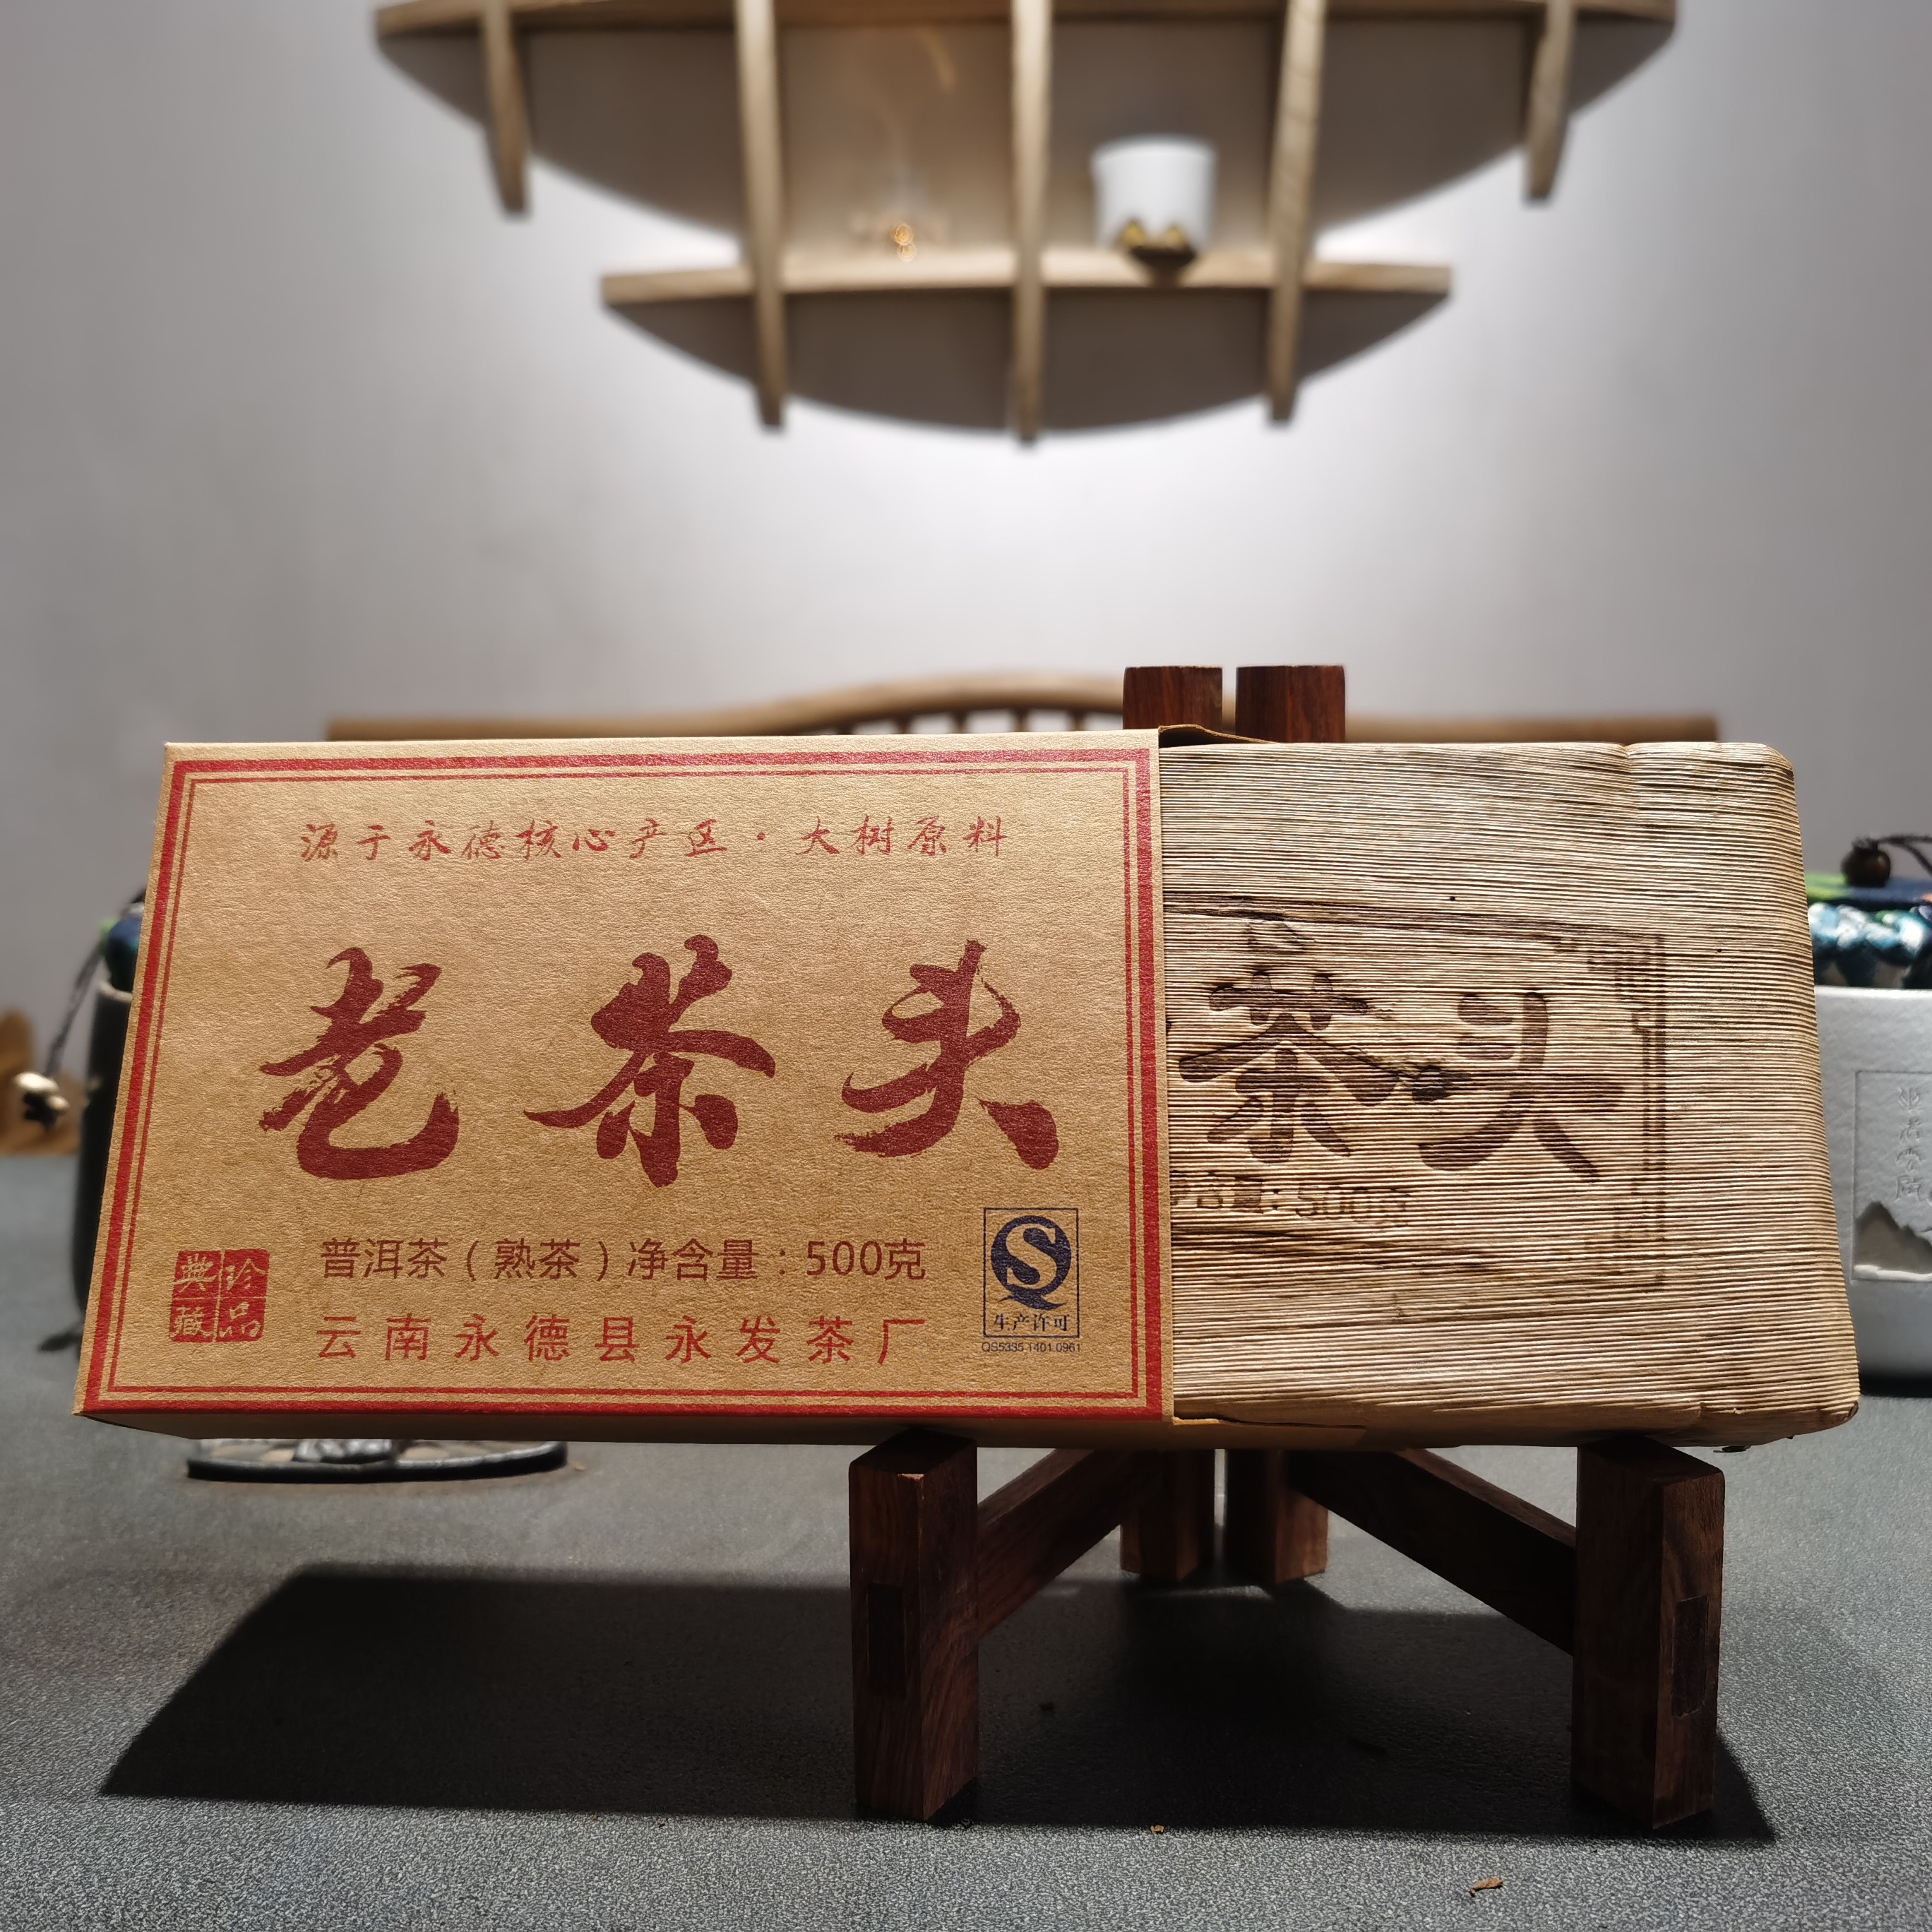 源于永德核心产区·大树原料
老茶头
普洱茶（熟茶）净含量：500克
云南永德县永发茶厂
珍品
典藏
生产许可
QS5335 1401 0961
茶头
含量：500克